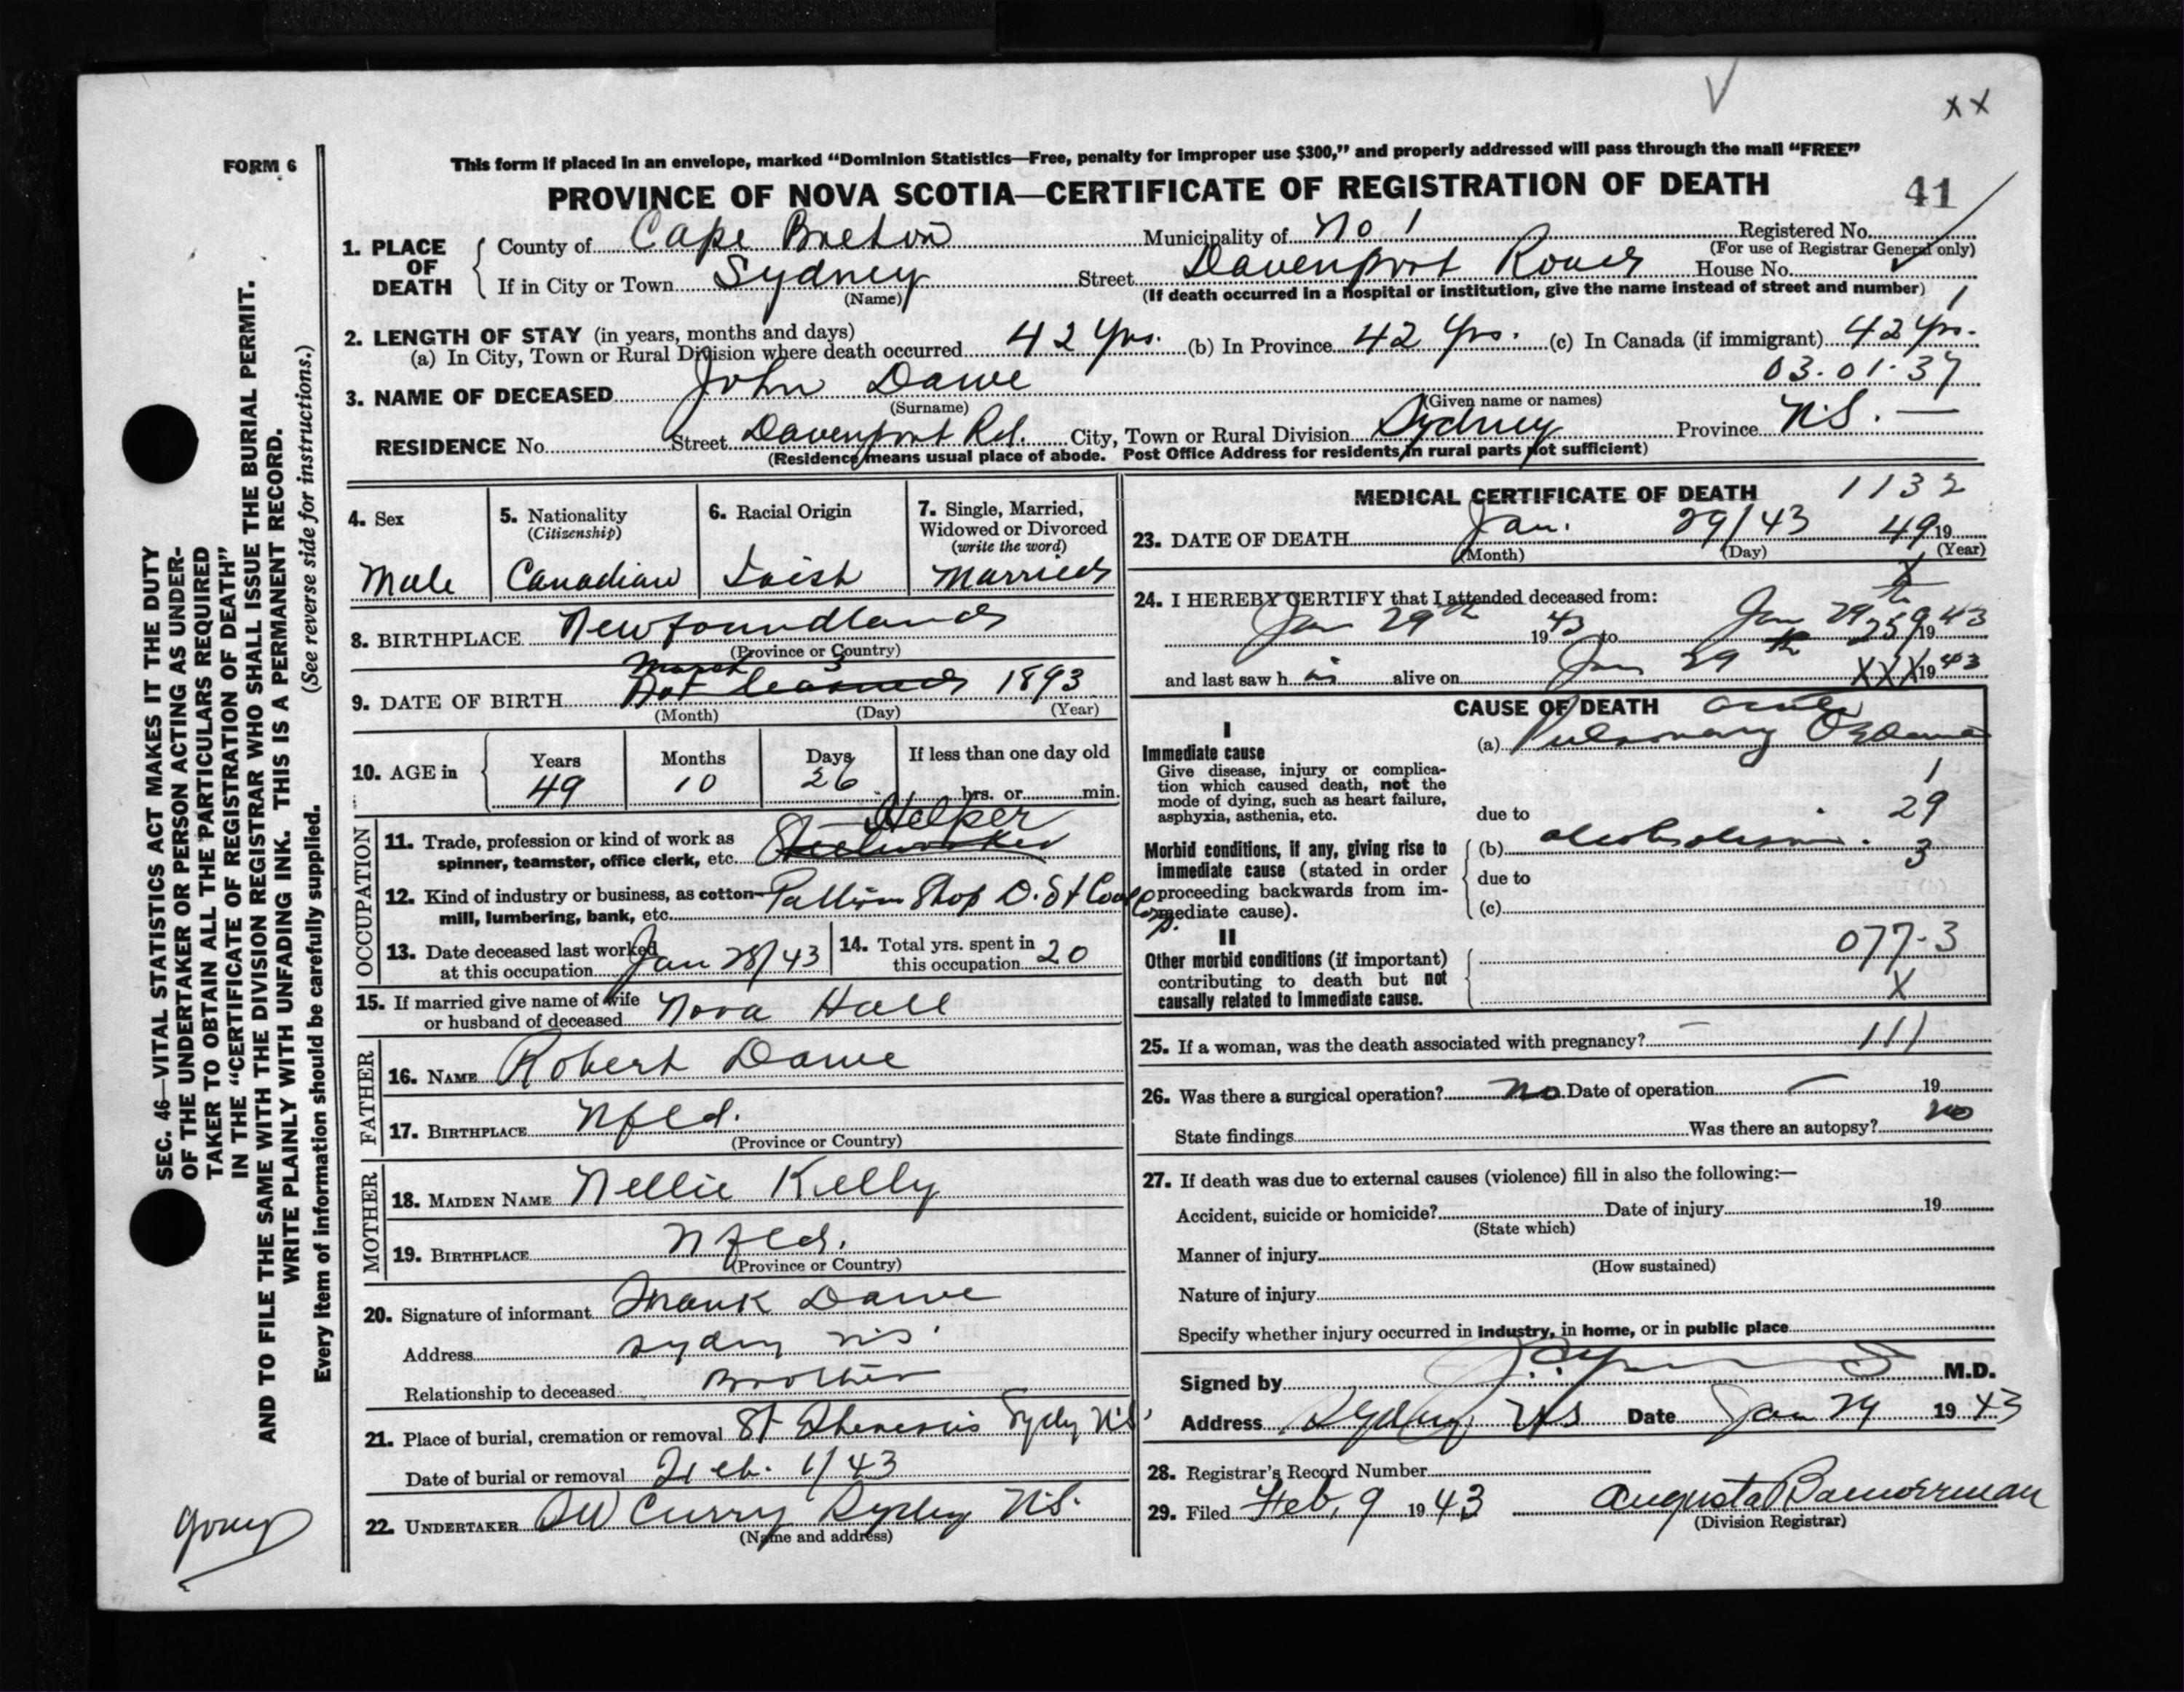 √
x x
FORM 6
This form if placed in an envelope, marked “Dominion Statistics—Free, penalty for improper use $300,” and properly addressed will pass through the mail “FREE”
PROVINCE OF NOVA SCOTIA—CERTIFICATE OF REGISTRATION OF DEATH
41
1. PLACE OF DEATH
County of Cape Breton Municipality of No 1 Registered No.
(For use of Registrar General only)
If in City or Town Sydney Street Davenport Road House No.
(Name) (If death occurred in a hospital or institution, give the name instead of street and number)
1
2. LENGTH OF STAY (in years, months and days)
(a) In City, Town or Rural Division where death occurred 42 yrs. (b) In Province 42 yrs. (c) In Canada (if immigrant) 42 yrs.
03.01.37
3. NAME OF DECEASED John Dawe
(Surname) (Given name or names)
RESIDENCE No. Street Davenport Rd. City, Town or Rural Division Sydney Province N.S. —
(Residence means usual place of abode. Post Office Address for residents in rural parts not sufficient)
4. Sex
Male
5. Nationality
(Citizenship)
Canadian
6. Racial Origin
Irish
7. Single, Married, Widowed or Divorced
(write the word)
Married
8. BIRTHPLACE Newfoundland
(Province or Country)
March 3
9. DATE OF BIRTH Not learned 1893
(Month) (Day) (Year)
10. AGE in
Years Months Days If less than one day old
49 10 26 hrs. or min.
OCCUPATION
Helper
11. Trade, profession or kind of work as
spinner, teamster, office clerk, etc. Steelworker
12. Kind of industry or business, as cotton-
mill, lumbering, bank, etc. Shop D. St Coal Co
13. Date deceased last worked
at this occupation Jan 28/43
14. Total yrs. spent in
this occupation 20
15. If married give name of wife
or husband of deceased Nora Hall
FATHER
16. NAME Robert Dawe
17. BIRTHPLACE Nfld.
(Province or Country)
MOTHER
18. MAIDEN NAME Nellie Kelly
19. BIRTHPLACE Nfld.
(Province or Country)
20. Signature of informant Frank Dawe
Address Sydney N.S.
Relationship to deceased Brother
21. Place of burial, cremation or removal St Theresa's Sydney N.S.
Date of burial or removal Feb. 1/43
22. UNDERTAKER Curry Sydney N.S.
(Name and address)
MEDICAL CERTIFICATE OF DEATH 1132
23. DATE OF DEATH Jan. 29/43 49 19
(Month) (Day) (Year)
X
24. I HEREBY CERTIFY that I attended deceased from:
Jan 29th 1943 to Jan 29th 259 1943
and last saw h im alive on Jan 29th XXX 1943
CAUSE OF DEATH
I
Immediate cause
Give disease, injury or complica-
tion which caused death, not the
mode of dying, such as heart failure,
asphyxia, asthenia, etc.
acute
(a) Pulmonary Oedema
1
due to 29
Morbid conditions, if any, giving rise to
immediate cause (stated in order
proceeding backwards from im-
mediate cause).
(b) alcoholism. 3
due to
(c)
II
Other morbid conditions (if important)
contributing to death but not
causally related to immediate cause.
077-3
X
25. If a woman, was the death associated with pregnancy? — 111
26. Was there a surgical operation? no Date of operation — 19
State findings Was there an autopsy? no
27. If death was due to external causes (violence) fill in also the following:—
Accident, suicide or homicide? Date of injury 19
(State which)
Manner of injury
(How sustained)
Nature of injury
Specify whether injury occurred in industry, in home, or in public place
Signed by M.D.
Address Sydney, N.S Date Jan 29 1943
28. Registrar's Record Number
29. Filed Feb. 9 1943 Augusta
(Division Registrar)
SEC. 46—VITAL STATISTICS ACT MAKES IT THE DUTY
OF THE UNDERTAKER OR PERSON ACTING AS UNDER-
TAKER TO OBTAIN ALL THE PARTICULARS REQUIRED
IN THE “CERTIFICATE OF REGISTRATION OF DEATH”
AND TO FILE THE SAME WITH THE DIVISION REGISTRAR WHO SHALL ISSUE THE BURIAL PERMIT.
WRITE PLAINLY WITH UNFADING INK. THIS IS A PERMANENT RECORD.
Every item of information should be carefully supplied. (See reverse side for instructions.)